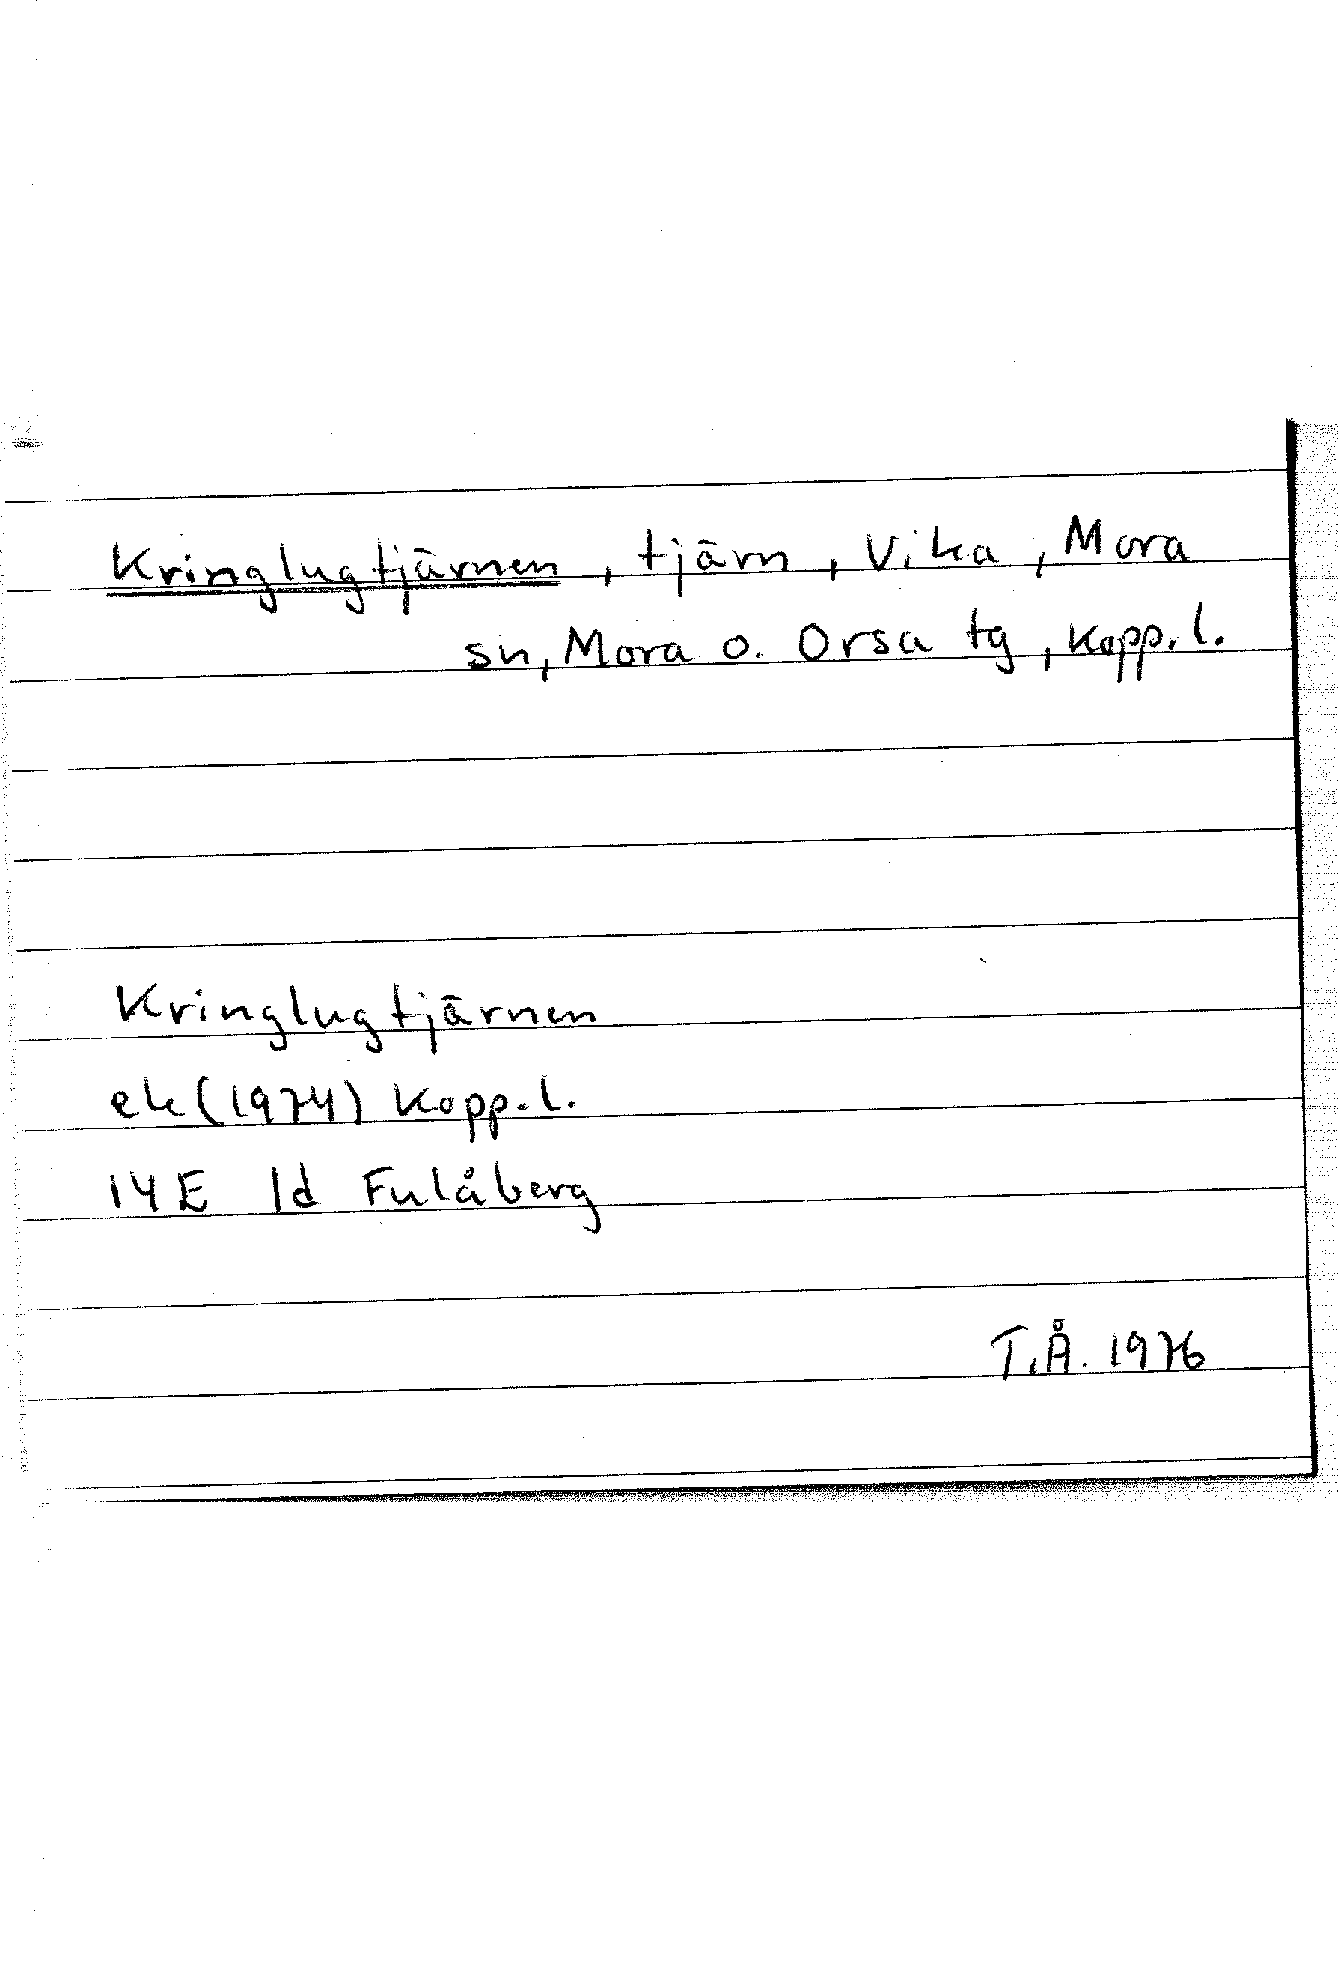 Kringlugtjärnen, tjärn, Vika, Mora
sn, Mora o. Orsa tg, Kopp. l.
Kringlugtjärnen
ek (1974) Kopp. l.
14E 1d Fulåberg
T.Å. 1976